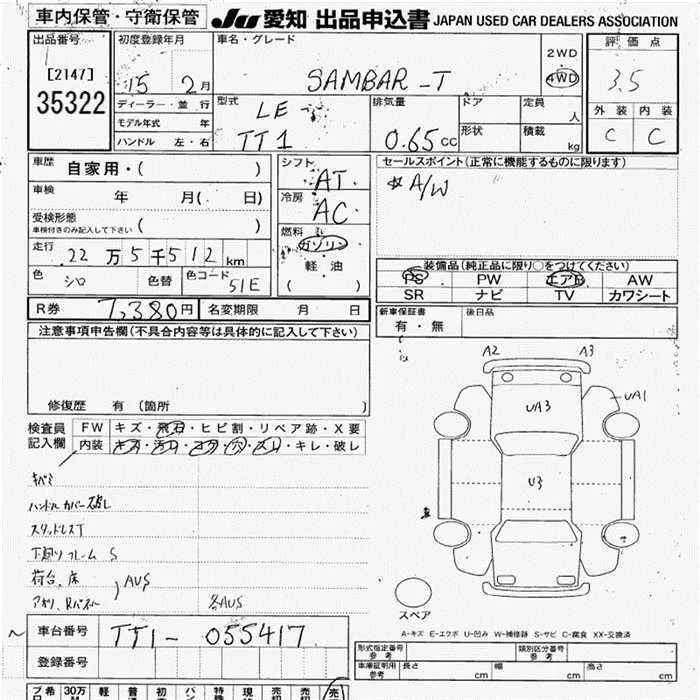 車内保管・守衛保管 JU 愛知 出品申込書 JAPAN USED CAR DEALERS ASSOCIATION
出品番号 初度登録年月 車名・グレード 評価点
[2147] 15 2月 SAMBAR-T 2WD 4WD 3.5
35322 ディーラー・並行 型式 LE 排気量 ドア 定員 人 外装 内装
モデル年式 年 TT1 0.65cc 形状 積載 kg C C
ハンドル 左・右
車歴 自家用・( ) シフト AT セールスポイント(正常に機能するものに限ります)
車検 年 月( 日) 冷房 AC ※A/W
受検形態 ( )
車検付きのみ記入して下さい
燃料 ガソリン
走行 22万5千512km 軽油
装備品(純正品に限り○をつけてください)
色 シロ 色替 色コード 51E ( )
PS PW エアB AW
SR ナビ TV カワシート
R券 7,380円 名変期限 月 日
新車保証書 後日品
有・無
注意事項申告欄(不具合内容等は具体的に記入して下さい)
修復歴 有 (箇所
検査員 FW キズ・飛石・ヒビ割・リペア跡・X要
記入欄 内装 キズ・汚レ・コゲ・穴・スレ・キレ・破レ
A2 A3
UA3 UA1
U3
キバミ
ハンドルカバー破レ
スタッドレスT
下廻りフレーム S
荷台、床
AUS
アオリ、Rパネル 各AUS
スペア
A-キズ E-エクボ U-凹み W-補修跡 S-サビ C-腐食 XX-交換済
車台番号 TT1-055417
登録番号
形式指定番号 参考 類別区分番号 参考
車庫証明用 参考 長さ cm 幅 cm 高さ cm